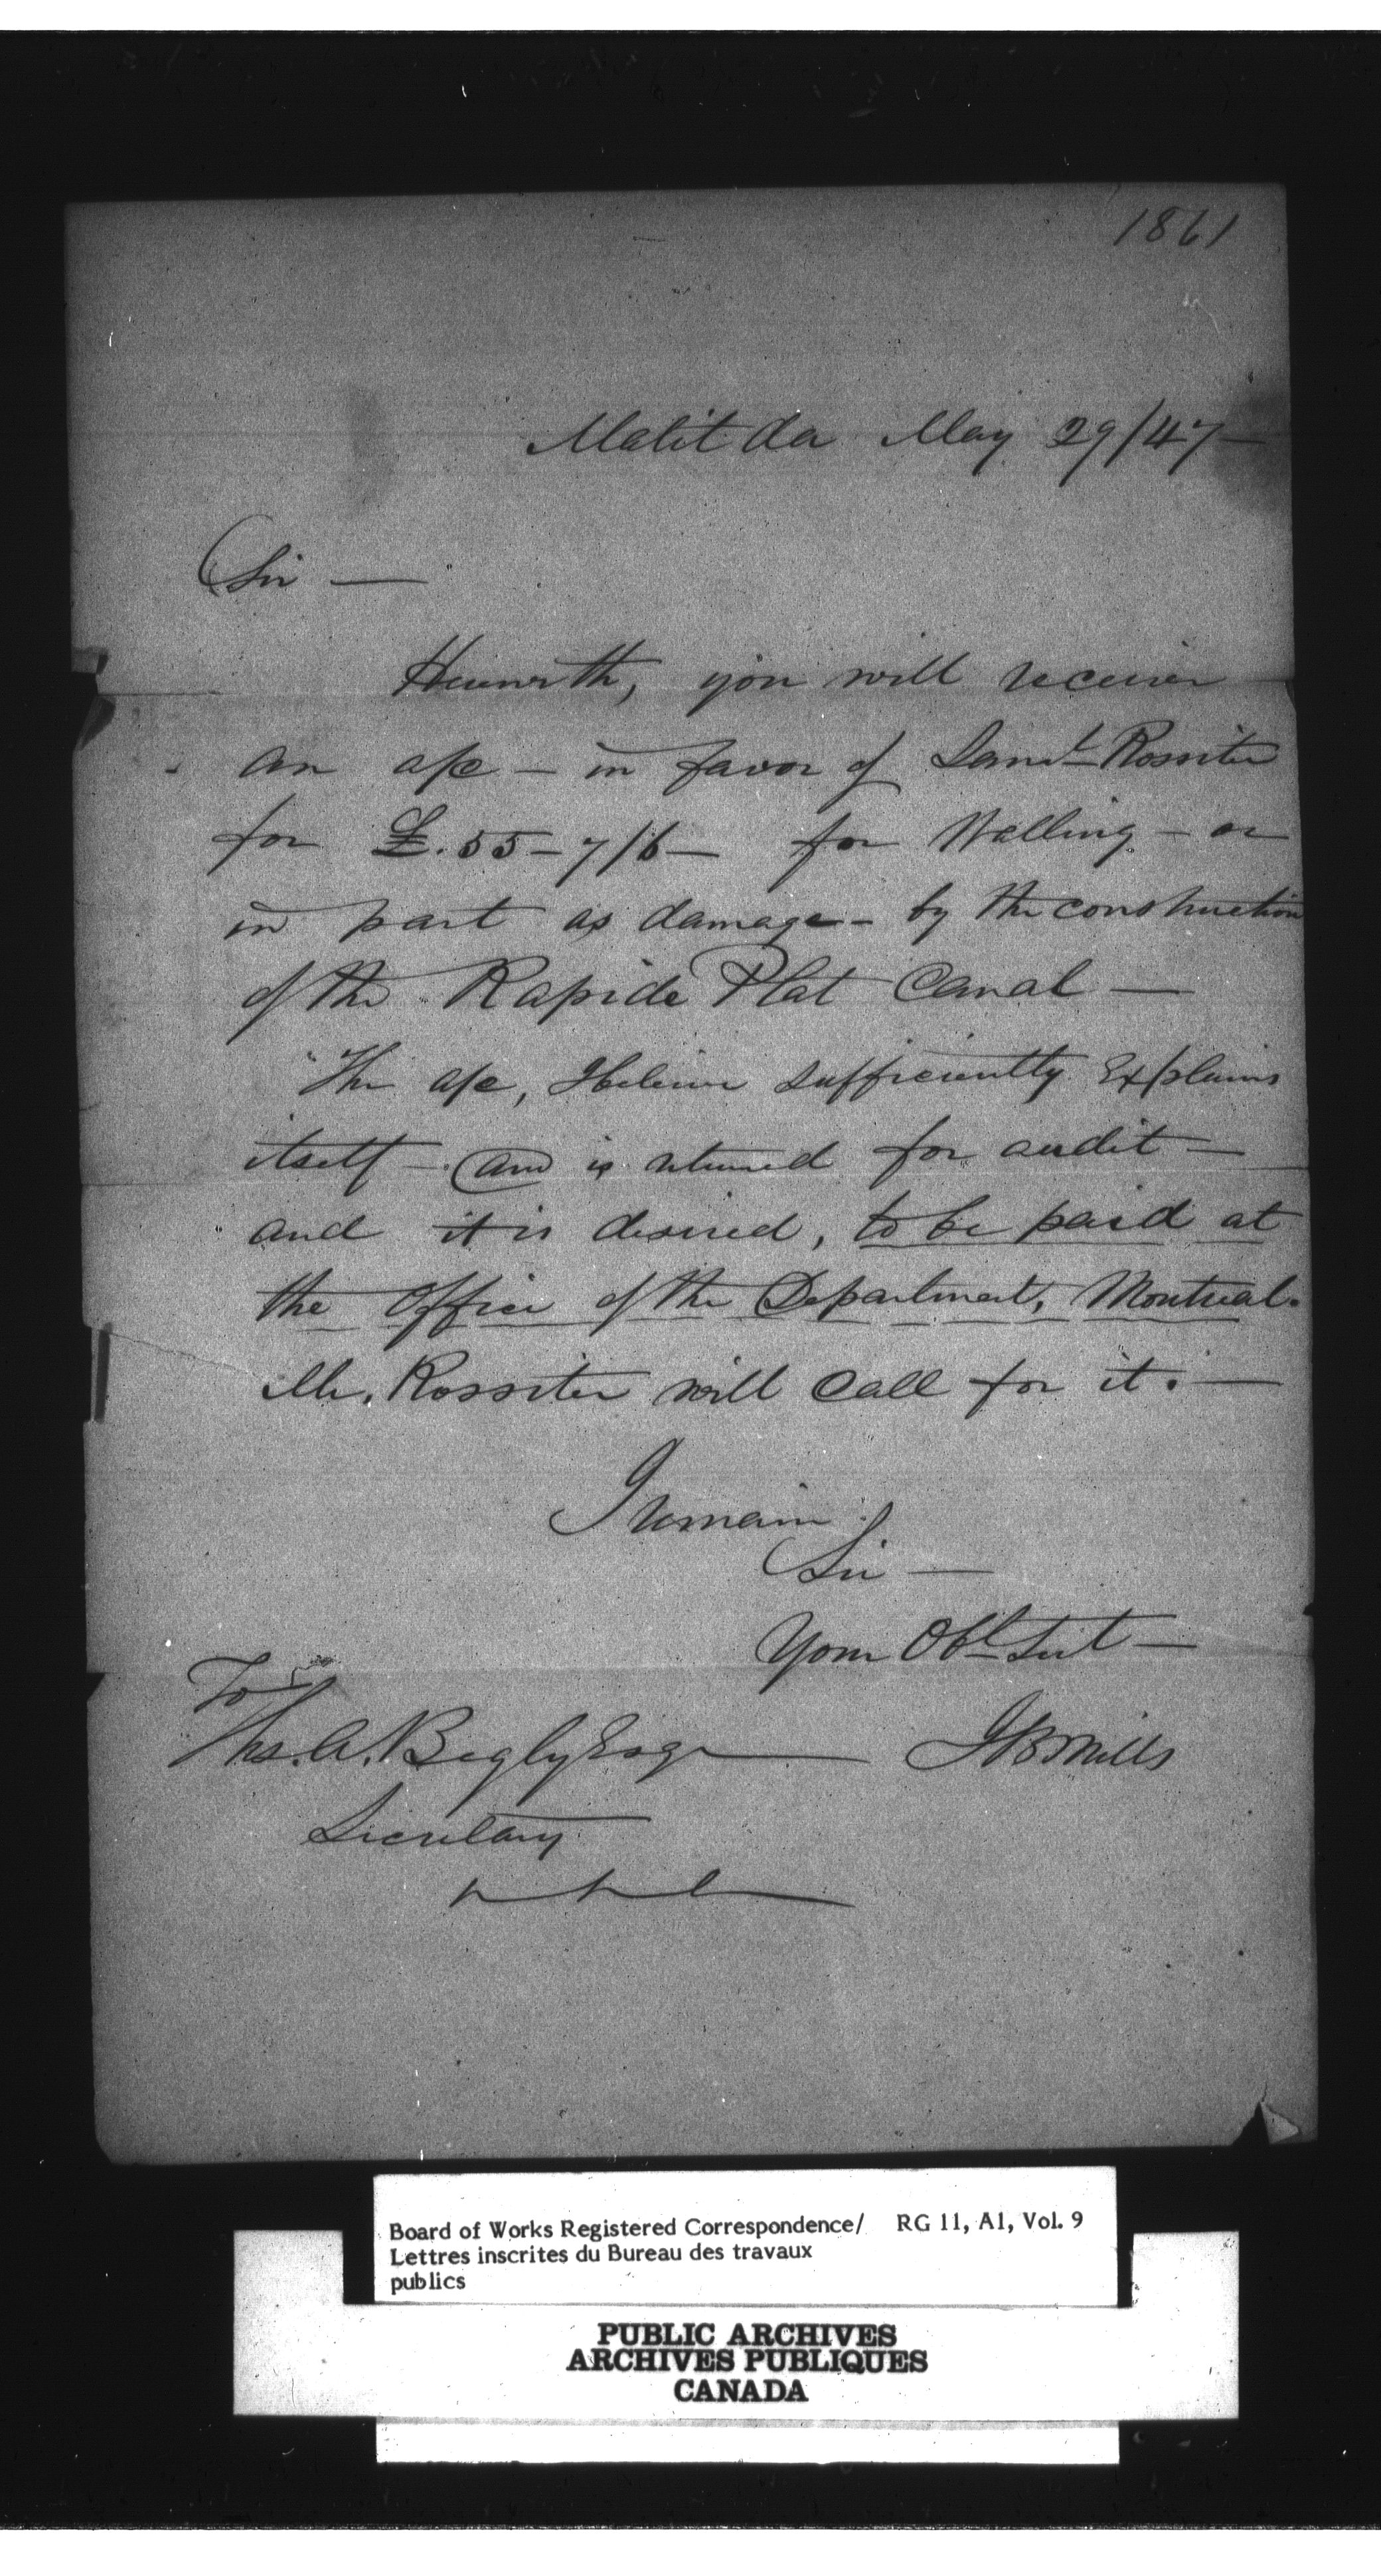 1861
Matilda May 29/47 —
Sir —
Herewith, you will receive
an a/c — in favor of Saml Rossiter
for £.55-7/6 — for Walling — or
in part as damage — by the construction
of the Rapide Plat Canal —
The a/c, I believe sufficiently Explains
itself — and is returned for audit —
and it is desired, to be paid at
the Office of the Department, Montreal.
Mr. Rossiter will call for it. —
I remain
Sir —
Your Obt Svt —
To
Ths. A. Begly Esqr — JB Mills
Secretary
Board of Works Registered Correspondence/ RG 11, A1, Vol. 9
Lettres inscrites du Bureau des travaux
publics
PUBLIC ARCHIVES
ARCHIVES PUBLIQUES
CANADA